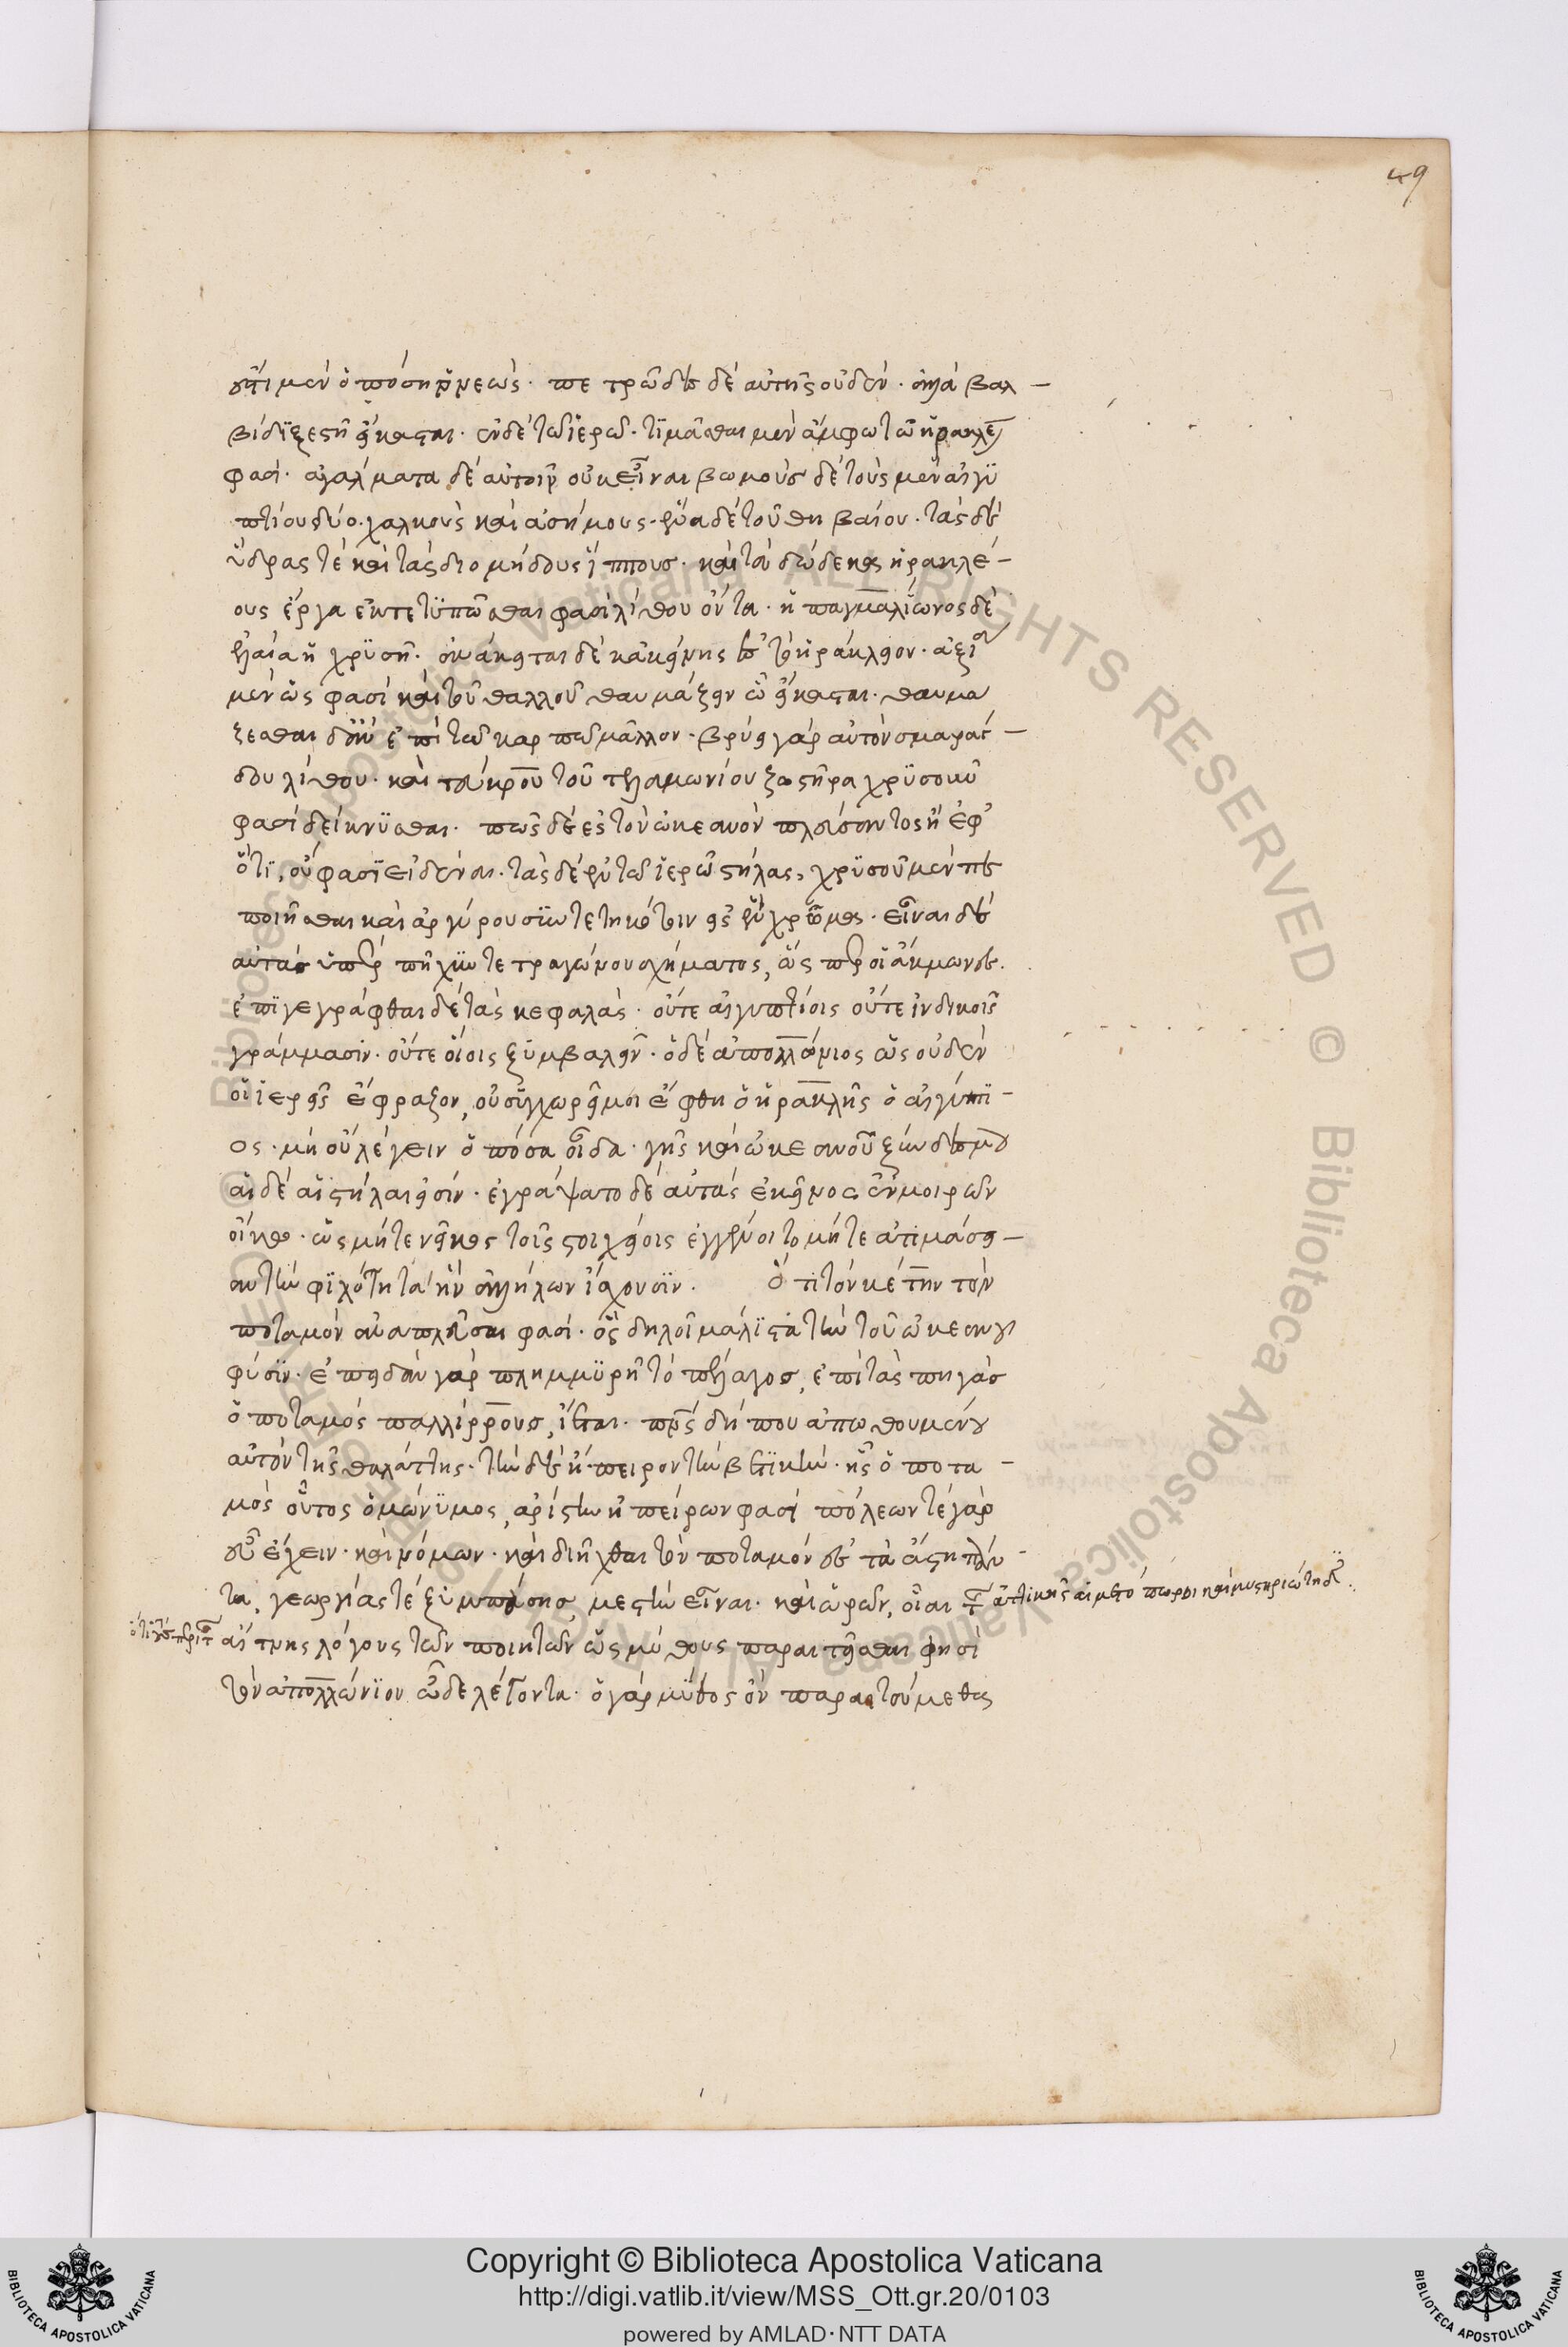 49
ἐστὶ μὲν ὁπόση ὁ νεώς· πετρῶδες δὲ αὐτῆς οὐδέν· ἀλλὰ βαλ-
βίδι ξεστῆ εἴκασται· ἐν δὲ τῶ ἱερῶ· τιμᾶσθαι μὲν ἄμφω τὼ ἡρακλέε
φασί· ἀγάλματα δὲ αὐτοῖν οὐκ εἶναι βωμοὺς δὲ τοὺς μὲν αἰγυ
πτίου δύο· χαλκοῦς καὶ ἀσήμους· ἕνα δὲ τοῦ θηβαίου· τὰς δὲ
ὕδρας τὲ καὶ τὰς διομήδους ἵππους· καὶ τὰ δώδεκα ἡρακλέ-
ους ἔργα ἐκτετυπῶσθαι φασὶ λίθου ὄντα· ἡ παγμαλίωνος δὲ
ἐλαία ἡ χρυσῆ· ἀνάκειται δὲ κἀκείνης ἐς τὸ ἡράκλειον· ἀξία
μὲν ὥς φασὶ καὶ τοῦ θαλλοῦ θαυμάζειν ᾧ εἴκασται· θαυμά
ζεσθαι δ᾽ ἂν ἐπὶ τῶ καρπῶ μᾶλλον· βρύει γὰρ αὐτὸν σμαράγ-
δου λίθου· καὶ τεύκρου τοῦ τελαμωνίου ζωστῆρα χρυσοῦν
φασὶ δείκνυσθαι· πῶς δὲ ἐς τὸν ὠκεανὸν πλεύσαντος ἢ ἐφ᾽
ὅτι, οὔ φασϊ εἰδέναι· τὰς δὲ ἐν τῶ ἱερῶ στήλας, χρυσοῦ μὲν πε
ποιῆσθαι καὶ ἀργύρου συντετηκότοιν εἰς ἓν χρῶμα· εἶναι δὲ
αὐτὰς ὑπὲρ πῆχυν τετραγώνου σχήματος, ὥσπερ οἱ ἄκμωνες·
ἐπιγεγράφθαι δὲ τὰς κεφαλὰς· οὔτε αἰγυπτίοις οὔτε ἰνδικοῖς
γράμμασιν· οὔτε οἵοις ξυμβαλεῖν· ὁ δὲ ἀπολλώνιος ὡς οὐδὲν
οἱ ἱερεῖς ἔφραζον, οὐ συγχωρεῖ μοι ἔφθη ὁ ἡρακλῆς ὁ αἰγύπτι-
ος· μὴ οὐ λέγειν ὁπόσα οἶδα· γῆς καὶ ὠκεανοῦ ξύνδεσμοι
αἵδε αἱ στῆλαι εἰσίν· ἐγράψατο δὲ αὐτὰς ἐκεῖνος ἐν μοιρῶν
οἴκω· ὡς μήτε νεῖκος τοῖς στοιχείοις ἐγγένοιτο μήτε ἀτιμάσει-
αν τὴν φιλότητα ἣν ἀλλήλων ἴσχουσιν. Ὅτι τὸν κέτην τὸν
ποταμὸν ἀναπλεῦσαι φασί· ὃς δηλοῖ μάλιστα τὴν τοῦ ὠκεανοῦ
φύσιν· ἐπειδὰν γὰρ πλημμυρῆ τὸ πέλαγος, ἐπὶ τὰς πηγὰς
ὁ ποταμὸς παλλίρρους, ἵεται· πνεύματος δή που ἀπωθουμένου
αὐτὸν τῆς θαλάττης· τὴν δὲ ἤπειρον τὴν βετικὴν· ἧς ὁ ποτα-
μὸς οὗτος ὁμώνυμος, ἀρίστην ἠπείρων φασί πόλεων τὲ γὰρ
εὖ ἔχειν· καὶ νόμων· καὶ διῆχθαι τὸν ποταμὸν ἐς τὰ ἄστη πάν-
τα, γεωργίας τὲ ξυμπάσης, μεστὴν εἶναι· καὶ ὡρῶν, οἷαι τῆς ἀττικῆς αἱ μετόπωροι καὶ μυστηριώτιδες.
αἴτνης λόγους τῶν ποιητῶν ὡς μύθους παραιτεῖσθαι φησὶ
τὸν ἀπολλώνιον ὧδε λέγοντα· ὁ γὰρ μῦθος ὃν παραιτούμεθα
Copyright © Biblioteca Apostolica Vaticana
http://digi.vatlib.it/view/MSS_Ott.gr.20/0103
powered by AMLAD·NTT DATA